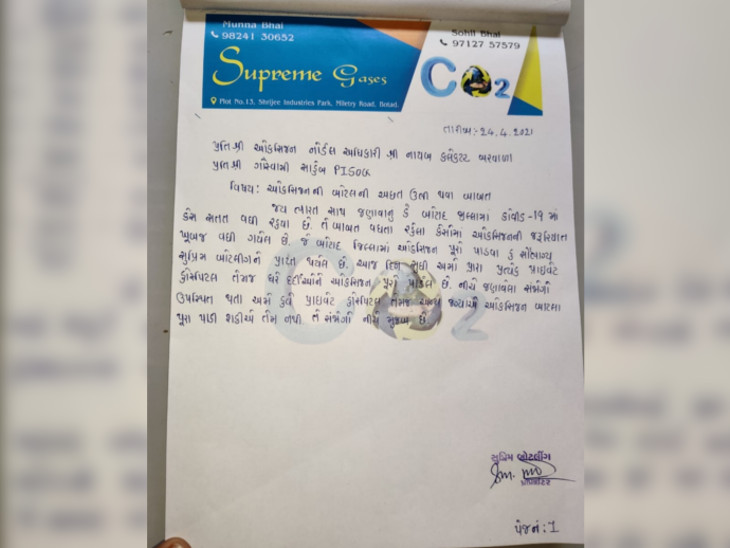 Munna Bhai
98241 30652
Sohil Bhai
97127 57579
Supreme Gases
CO2
Plot No.13, Shrijee Industries Park, Miletry Road, Botad.
તારીખ:-24.4.2021
પ્રતિશ્રી ઓકસિજન નોડલ અધિકારી શ્રી નાયબ કલેકટર બરવાળા
પ્રતિશ્રી ગોસ્વામી સાહેબ PISOG
વિષય: ઓકસિજનની બોટલની અછત ઉભી થવા બાબત
જય ભારત સાથ જણાવાનુ કે બોટાદ જીલ્લામા કોવીડ-19 માં
કેસ સતત વધી રહ્યા છે. તે બાબત વધતા રહેલા કેસોમાં ઓકસિજનની જરૂરિયાત
ખુબજ વધી ગયેલ છે. જે બોટાદ જિલ્લામાં ઓકસિજન પુરો પાડવા કે સૌભાગ્ય
સુપ્રિમ બોટલીંગને પ્રાપ્ત થયેલ છે. આજ દિન સુધી અમો દ્વારા પ્રત્યેક પ્રાઇવેટ
હોસ્પિટલ તેમજ ઘરે દર્દીઓને ઓકસિજન પુરો પાડેલ છે. નીચે જણાવેલા સંજોગો
ઉપસ્થિત થતા અમો હવે પ્રાઇવેટ હોસ્પિટલ તેમજ અન્ય જગ્યાએ ઓકસિજન બોટલો
પુરા પાડી શકીએ તેમ નથી. તે સંજોગો નીચે મુજબ છે
સુપ્રિમ બોટલીંગ
પ્રોપરાઇટર
પેજનં:1